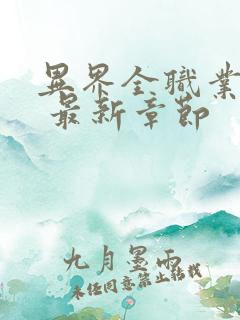 異界全職業
最新章節
九月墨雨
未經同意禁止轉載